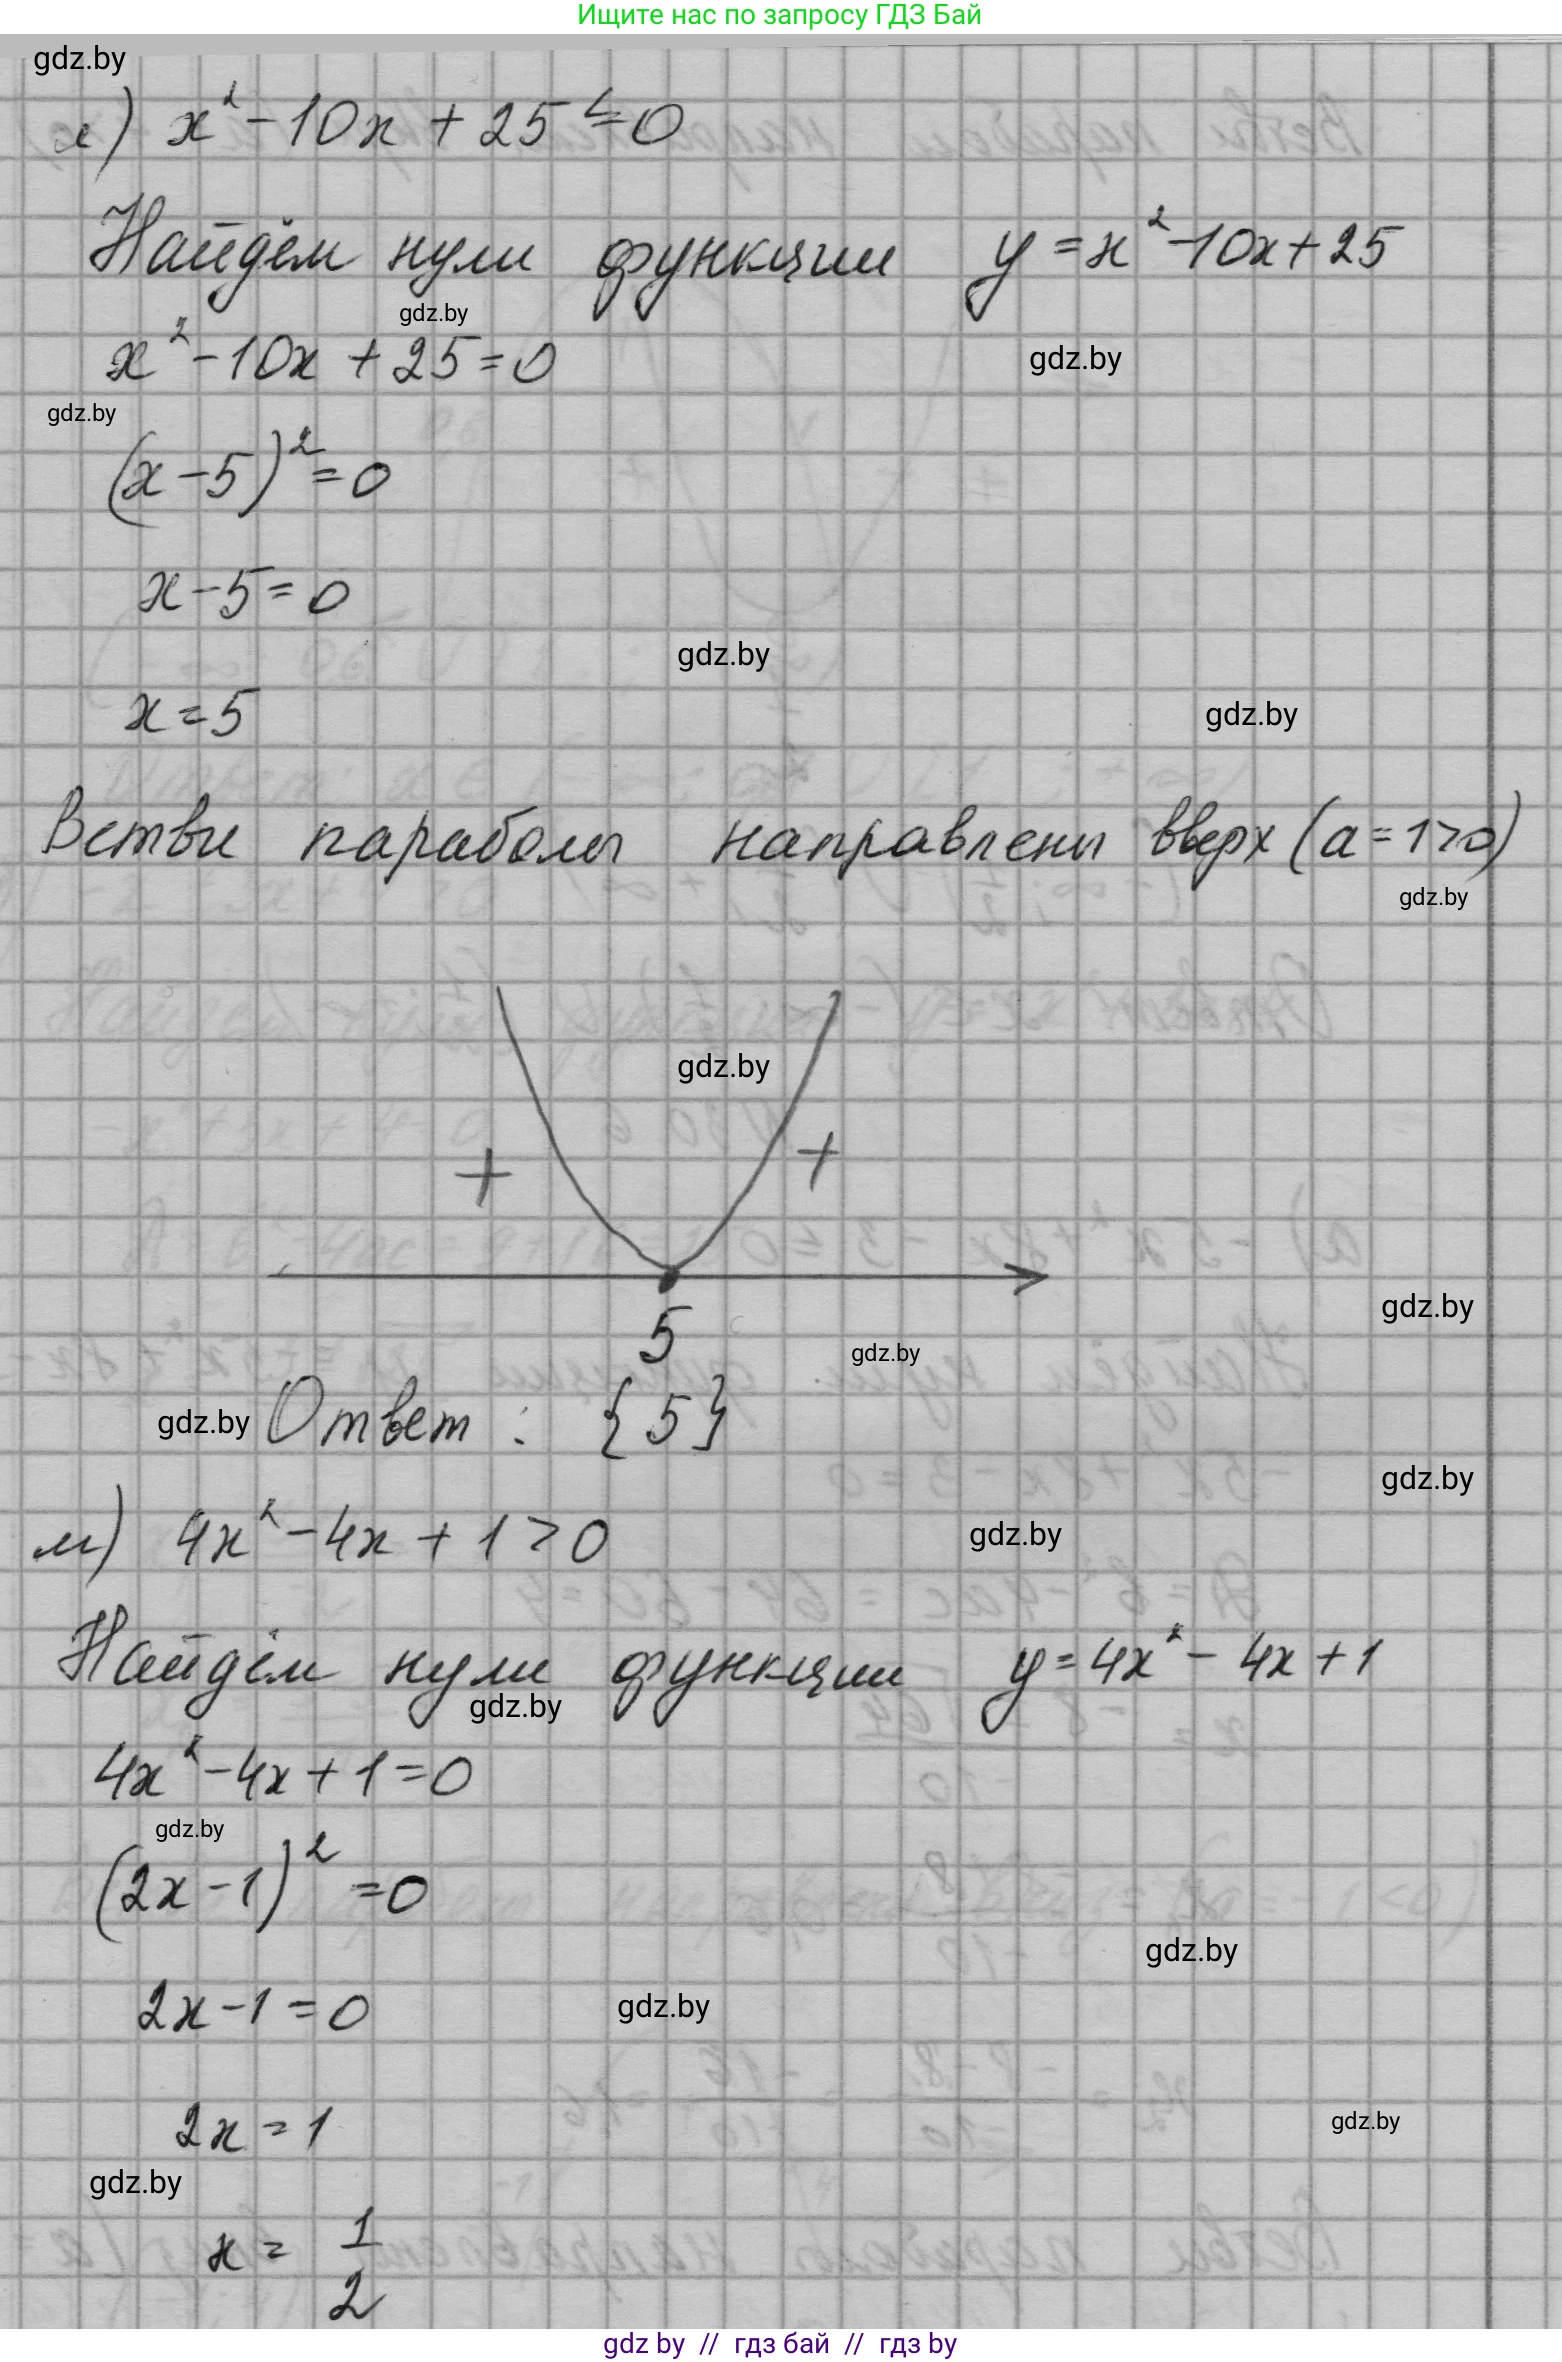 Ищите нас по запросу ГДЗ Бай
gdz.by
л) x² - 10x + 25 ≤ 0
Найдём нули функции y = x² - 10x + 25
gdz.by
x² - 10x + 25 = 0
gdz.by
gdz.by
(x - 5)² = 0
x - 5 = 0
gdz.by
x = 5
gdz.by
Ветви параболы направлены вверх (a = 1 > 0)
gdz.by
gdz.by
+ +
gdz.by
5
gdz.by
gdz.by
Ответ: {5}
gdz.by
м) 4x² - 4x + 1 > 0
gdz.by
Найдём нули функции y = 4x² - 4x + 1
gdz.by
4x² - 4x + 1 = 0
gdz.by
(2x - 1)² = 0
gdz.by
2x - 1 = 0
gdz.by
2x = 1
gdz.by
gdz.by
x = 1/2
gdz by // гдз бай // гдз by